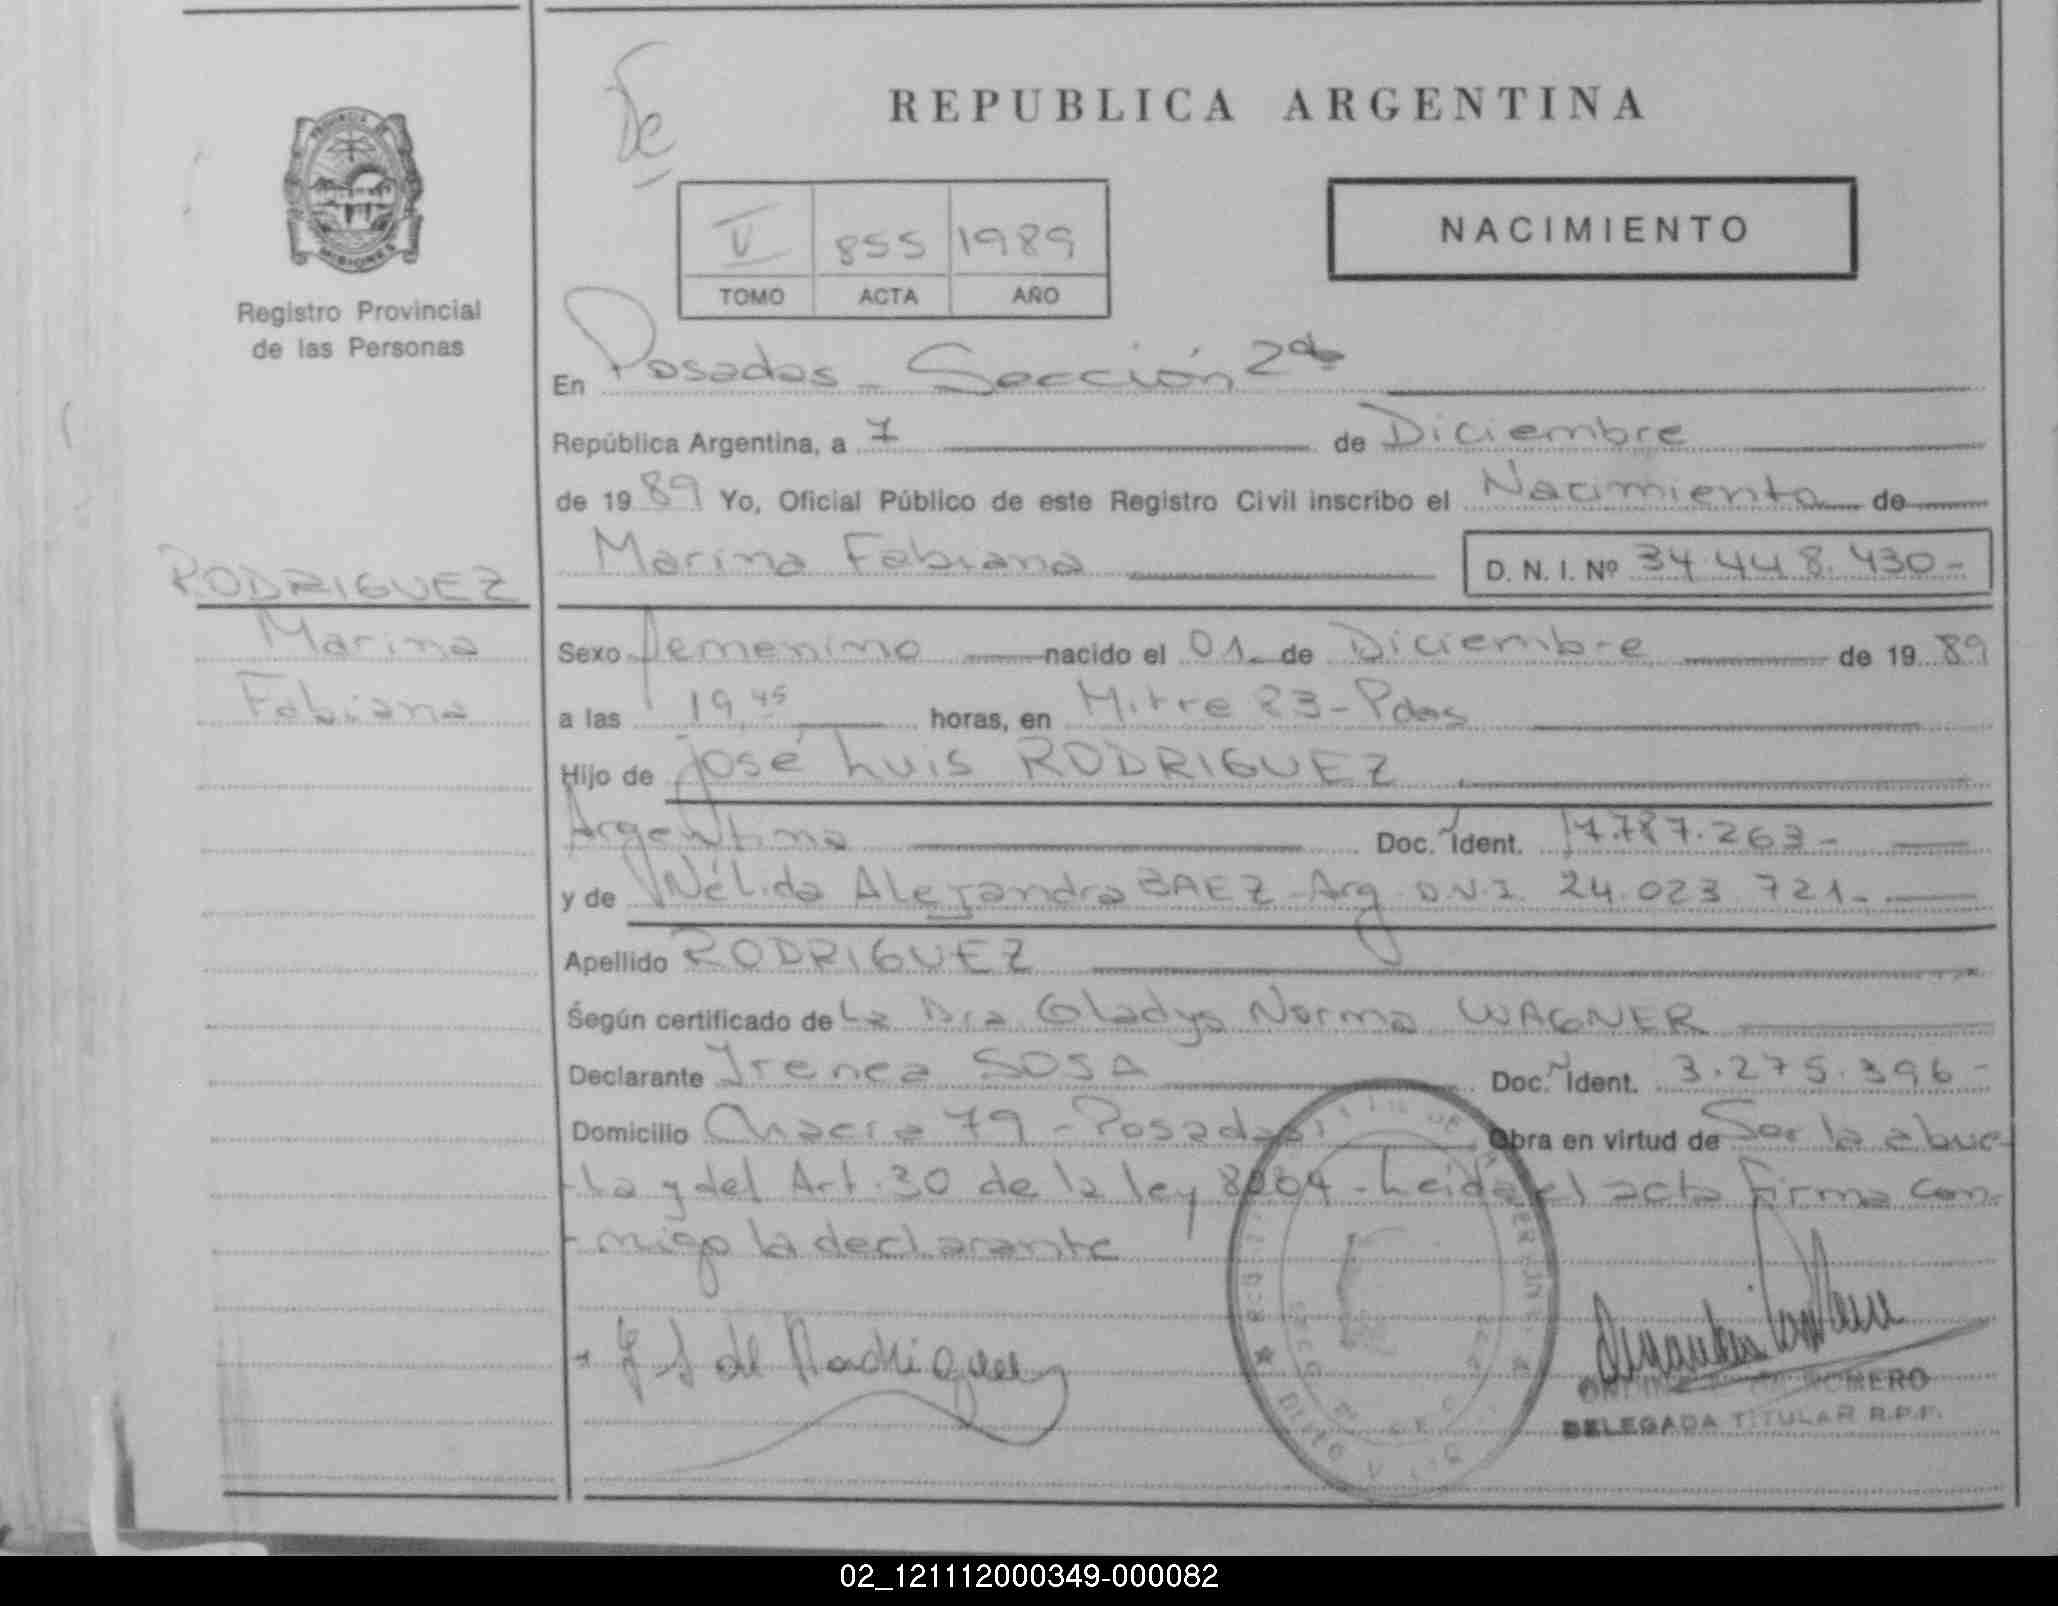 De
REPUBLICA ARGENTINA
PROVINCIA DE
MISIONES
Registro Provincial
de las Personas
V 855 1989
TOMO ACTA AÑO
NACIMIENTO
En Posadas - Sección 2da
República Argentina, a 7 de Diciembre
de 1989 Yo, Oficial Público de este Registro Civil inscribo el Nacimiento de
Marina Fabiana D. N. I. Nº 34.448.430-
RODRIGUEZ
Marina
Fabiana
Sexo femenino nacido el 01 de Diciembre de 1989
a las 19,45 horas, en Mitre 23-Pdas
Hijo de josé Luis RODRIGUEZ
Argentina Doc. Ident. 17.787.263-
y de Nélida Alejandra BAEZ-Arg D.N.I. 24.023.721-
Apellido RODRIGUEZ
Según certificado de La Dra Gladys Norma WAGNER
Declarante Irenea SOSA Doc. Ident. 3.275.396-
Domicilio Chacra 79 - Posadas Obra en virtud de Ser la abue-
-la y del Art. 30 de la ley 8204 - Leida el acta firma con-
-migo la declarante
I S de Rodriguez
ROMERO
DELEGADA TITULAR R.P.P.
02_121112000349-000082